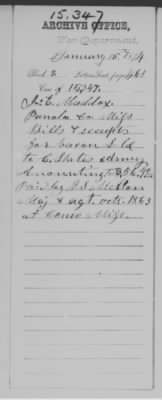 15.347
ARCHIVE OFFICE,
War Department,
January 15th, 74
Book 2 Letters Recd, page 461
Case of 15,347.
J. C. Maddox
Panola Co Miss
Bills & receipts
for bacon sold
to C. States army
Amounting to
Paid by
Maj & agt. octr. 1863
at Como Miss.